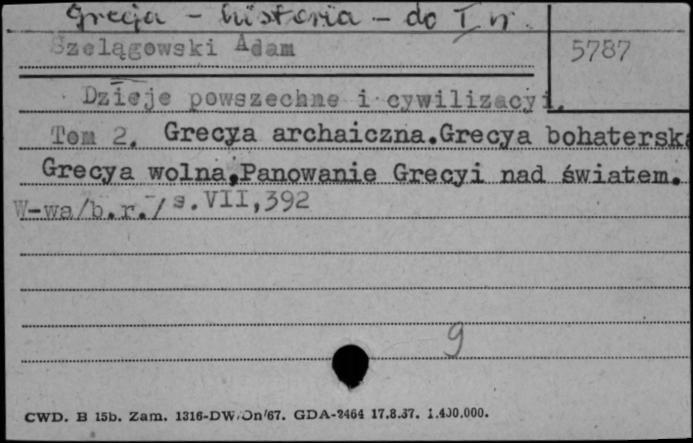 Grecja - historia - do I w.
Szelągowski Adam
5787
Dzieje powszechne i cywilizacyi.
Tom 2. Grecya archaiczna.Grecya bohaterska
Grecya wolna,Panowanie Grecyi nad światem.
W-wa/b.r./ s.VII,392
g
CWD. B 15b. Zam. 1316-DW/Dn/67. GDA-2464 17.8.67. 1.400.000.